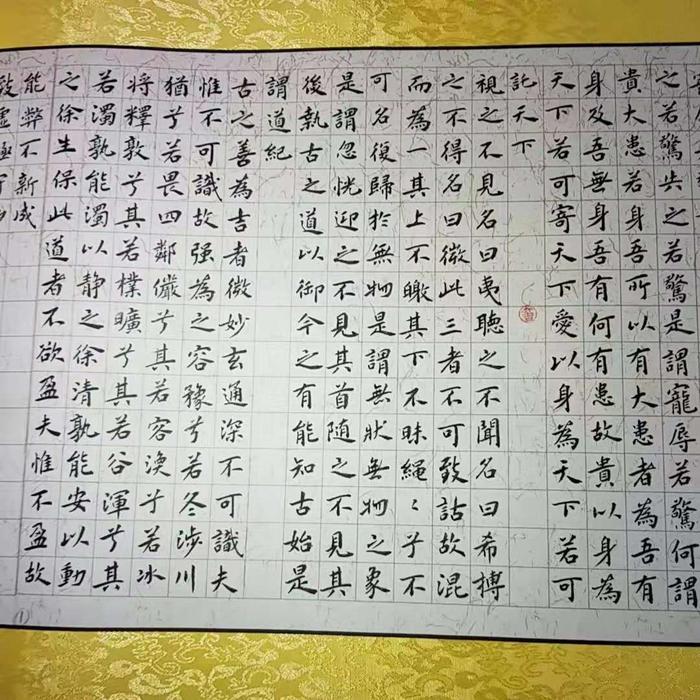 之若驚失之若驚是謂寵辱若驚何謂
貴大患若身吾所以有大患者為吾有
身及吾無身吾有何有患故貴以身為
天下若可寄天下愛以身為天下若可
託天下
視之不見名曰夷聽之不聞名曰希搏
之不得名曰微此三者不可致詰故混
而為一其上不皦其下不昧繩〻兮不
可名復歸於無物是謂無狀無物之象
是謂忽恍迎之不見其首随之不見其
後執古之道以御今之有能知古始是
謂道紀
古之善為吉者微妙玄通深不可識夫
惟不可識故强為之容豫兮若冬涉川
猶兮若畏四鄰儼兮其若容渙兮若冰
將釋敦兮其若樸曠兮其若谷渾兮其
若濁孰能濁以静之徐清孰能安以動
之徐生保此道者不欲盈夫惟不盈故
能弊不新成
致虛極守